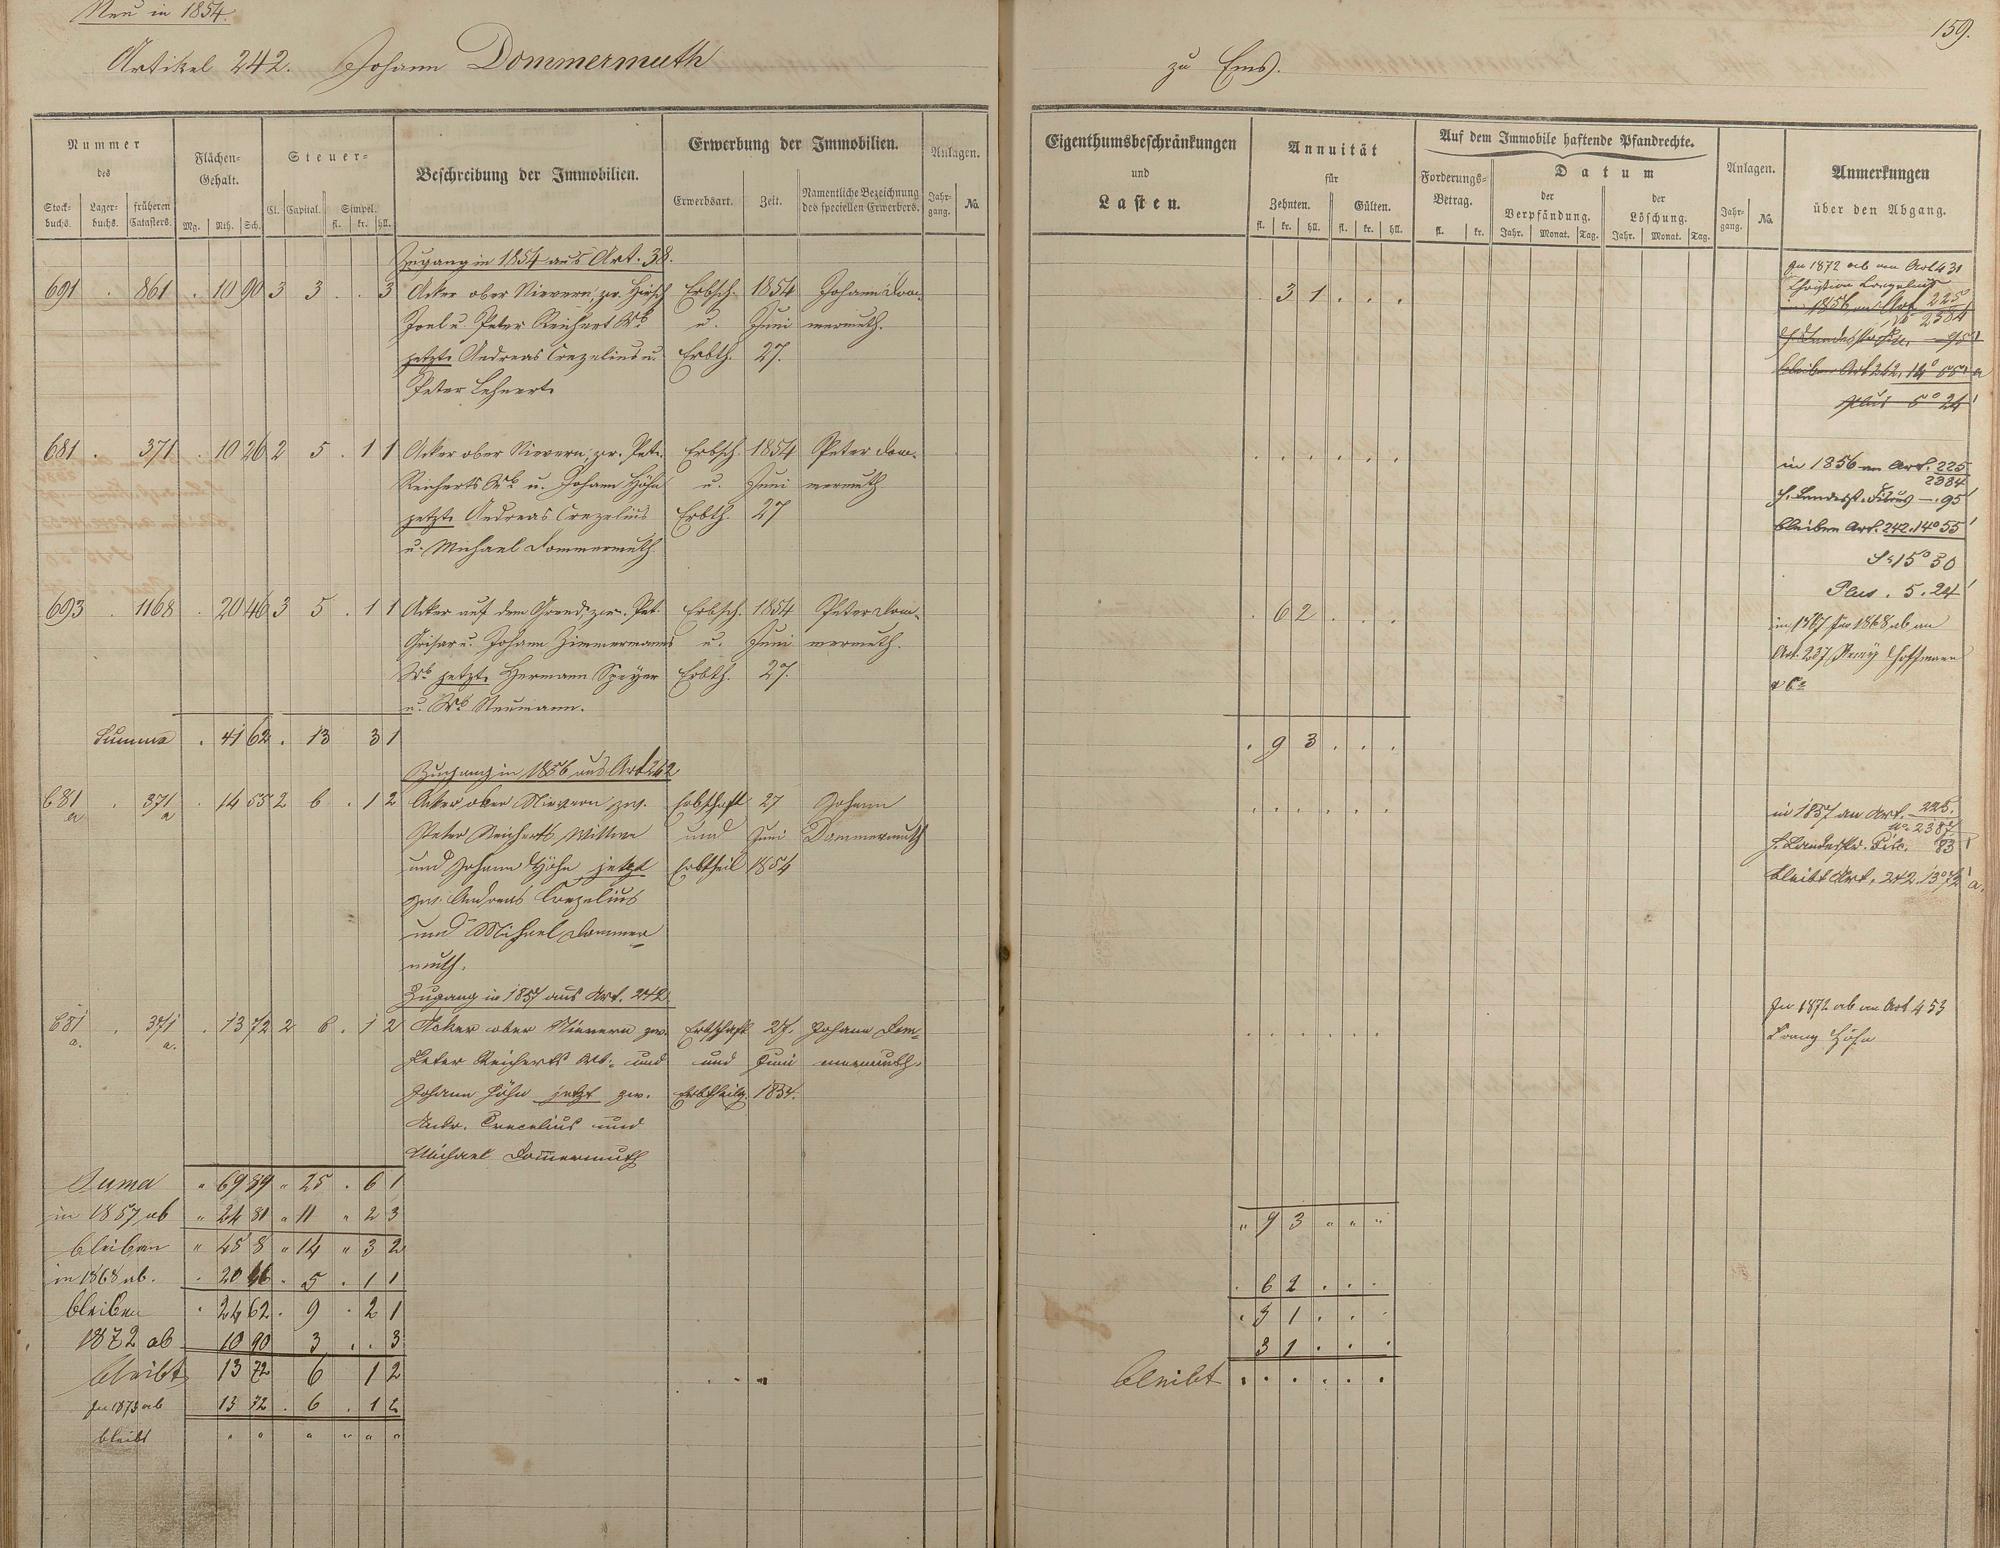 Neu in 1854.
159.
Artikel 242. Johann Dommermuth
zu Ems.
Nummer
des
Stock-
buchs.
Lager-
buchs.
früheren
Catasters.
Flächen-
Gehalt.
Mg. Rth. Sch.
Steuer-
Cl. Capital. Simpel.
fl. kr. hll.
Beschreibung der Immobilien.
Erwerbung der Immobilien.
Erwerbsart. Zeit. Namentliche Bezeichnung
des speciellen Erwerbers.
Anlagen.
Jahr-
gang. No.
Eigenthumsbeschränkungen
und
Lasten.
Annuität
für
Zehnten. Gülten.
fl. kr. hll. fl. kr. hll.
Auf dem Immobile haftende Pfandrechte.
Forderungs-
Betrag.
fl. kr.
Datum
der
Verpfändung.
Jahr. Monat. Tag.
der
Löschung.
Jahr. Monat. Tag.
Anlagen.
Jahr-
gang. No.
Anmerkungen
über den Abgang.
Zugang in 1854 aus Art. 38.
691 . 861 . 10 90 3 3 . . 3 Acker ober Nievern, zw. Hirsch Erbsch. 1854 Johann Dom-
Joel u. Peter Reichert Wb u. Juni mermuth.
jetzt Andreas Crezelius u. Erbth. 27.
Peter Lehnert
. 3 1 . . .
In 1872 ab an Art 431
Christian Crezelius
in 1856 an Art. 225
2384
bleiben Art 242. 14° 55' a
plus 5° 24'
681 . 371 . 10 26 2 5 . 1 1 Acker ober Nievern, zw. Pet. Erbsch. 1854 Peter Dom-
Reicherts Wb u. Johann Höhn u. Juni mermuth
jetzt Andreas Crezelius Erbth. 27
u. Michael Dommermuth
. . . . . .
in 1856 an Art. 225
2384
H. Landesst. Fiskus — . 95'
bleiben Art. 242. 14° 55'
S: 15° 50
Plus . 5. 24'
693 . 1168 . 20 46 3 5 . 1 1 Acker auf dem Grend zw. Pet. Erbsch. 1854 Peter Dom-
Grisar u. Johann Zimmermanns u. Juni mermuth.
Wb jetzt Hermann Speyer Erbth. 27.
u. Wb Neumann.
. 6 2 . . .
in 1867 pro 1868 ab an
Art. 237 Remy Hoffmann
Summa . 41 62 . 13 3 1
. 9 3 . . .
Zugang in 1856 aus Art 242
681 a . 371 a . 14 55 2 6 . 1 2 Acker ober Nievern zw. Erbschaft 27 Johann
Peter Reicherts Wittwe und Juni Dommermuth
und Johann Höhn jetzt Erbtheil 1854
zw. Andreas Crezelius
und Michael Dommer
muth.
. . . . . .
in 1857 an Art. 225.
No. 2387
H. Landesst. Fisc. 83'
bleibt Art. 242. 13° 72' a.
Zugang in 1857 aus Art. 242
681 a. . 371 a. . 13 72 2 6 . 1 2 Acker ober Nievern zw. Erbschaft 27. Johann Dom-
Peter Reicherts Wt. und und Juni mermuth.
Johann Höhn jetzt zw. Erbtheilg. 1854.
Andr. Crecelius und
Michael Dommermuth
. . . . . .
In 1872 ab an Art 453
Franz Höhn
Suma " 69 89 " 25 . 6 1
in 1857 ab " 24 81 " 11 " 2 3
" 9 3 " " "
bleiben " 45 8 " 14 " 3 2
in 1868 ab. . 20 46 . 5 . 1 1
. 6 2 . . .
bleiben . 24 62 . 9 . 2 1
. 3 1 . . .
1872 ab 10 90 3 . . 3
3 1 . . .
bleibt 13 72 6 1 2
bleibt . . . . . .
In 1873 ab 13 72 . 6 . 1 2
bleibt " " " " " "